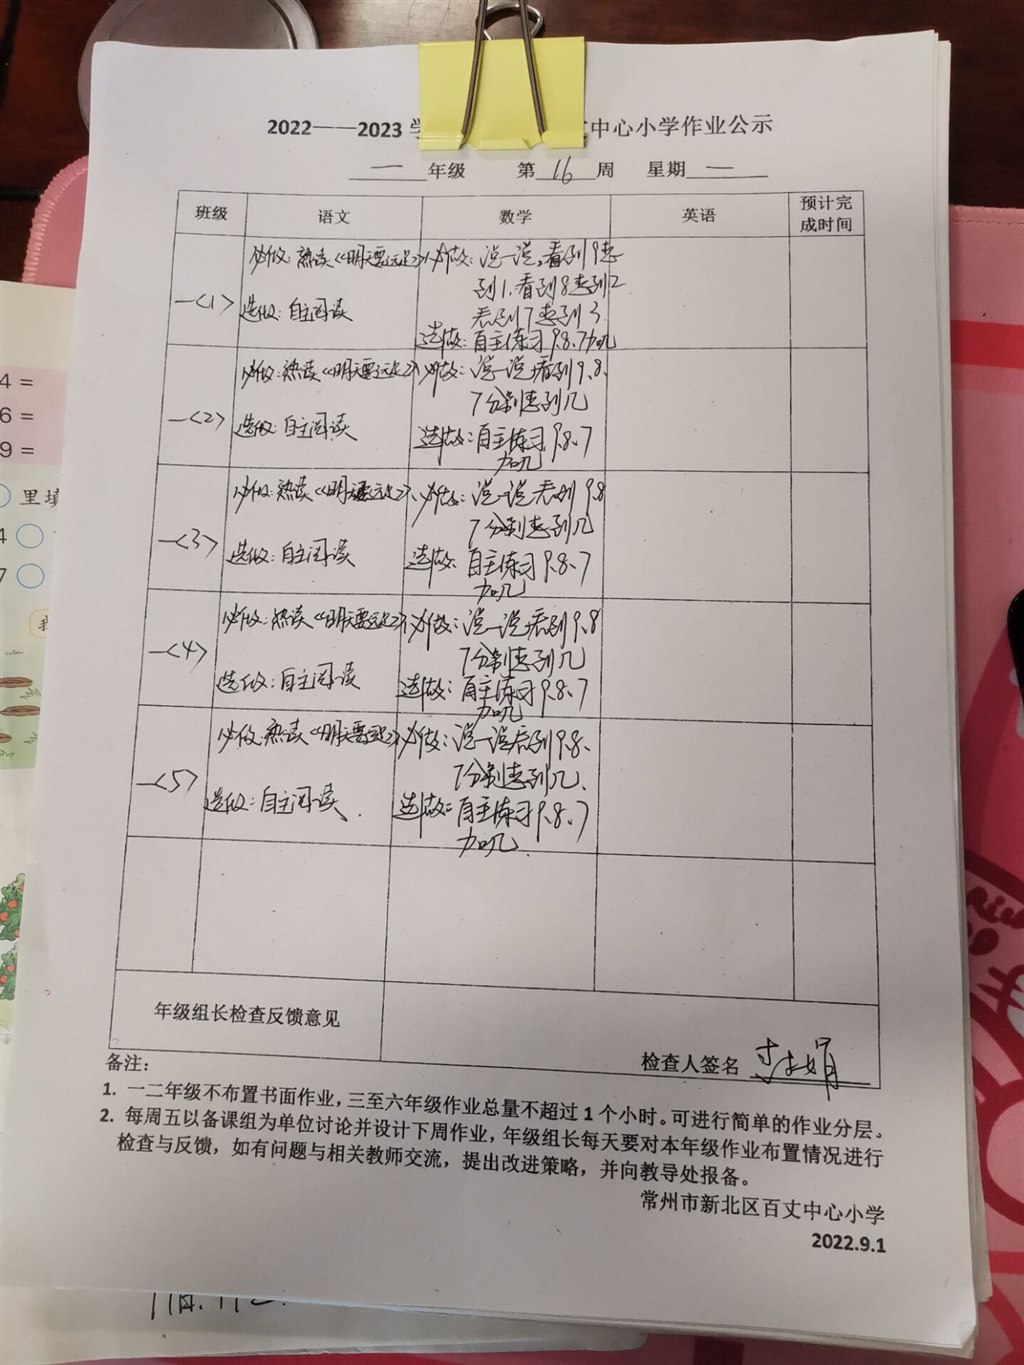 2022——2023 学 中心小学作业公示
一 年级 第 16 周 星期 一
班级 语文 数学 英语 预计完成时间
一<1>
必做:熟读《明天要远足》
选做:自主阅读
必做:说一说,看到9想
到1.看到8想到2
看到7想到3.
选做:自主练习9.8.7加几
一<2>
必做:熟读《明天要远足》
选做:自主阅读
必做:说一说看到9.8.
7分别想到几
选做:自主练习9.8.7
加几
一<3>
必做:熟读《明天要远足》
选做:自主阅读
必做:说一说看到9.8
7分别想到几
选做:自主练习9.8.7
加几
一<4>
必做:熟读《明天要远足》
选做:自主阅读
必做:说一说看到9.8
7分别想到几
选做:自主练习9.8.7
加几
一<5>
必做:熟读《明天要远足》
选做:自主阅读.
必做:说一说看到9.8、
7分别想到几、
选做:自主练习9.8、7
加几.
年级组长检查反馈意见
检查人签名
备注:
1. 一二年级不布置书面作业,三至六年级作业总量不超过1个小时。可进行简单的作业分层。
2. 每周五以备课组为单位讨论并设计下周作业,年级组长每天要对本年级作业布置情况进行
检查与反馈,如有问题与相关教师交流,提出改进策略,并向教导处报备。
常州市新北区百丈中心小学
2022.9.1
4 =
6 =
9 =
里填
4
7